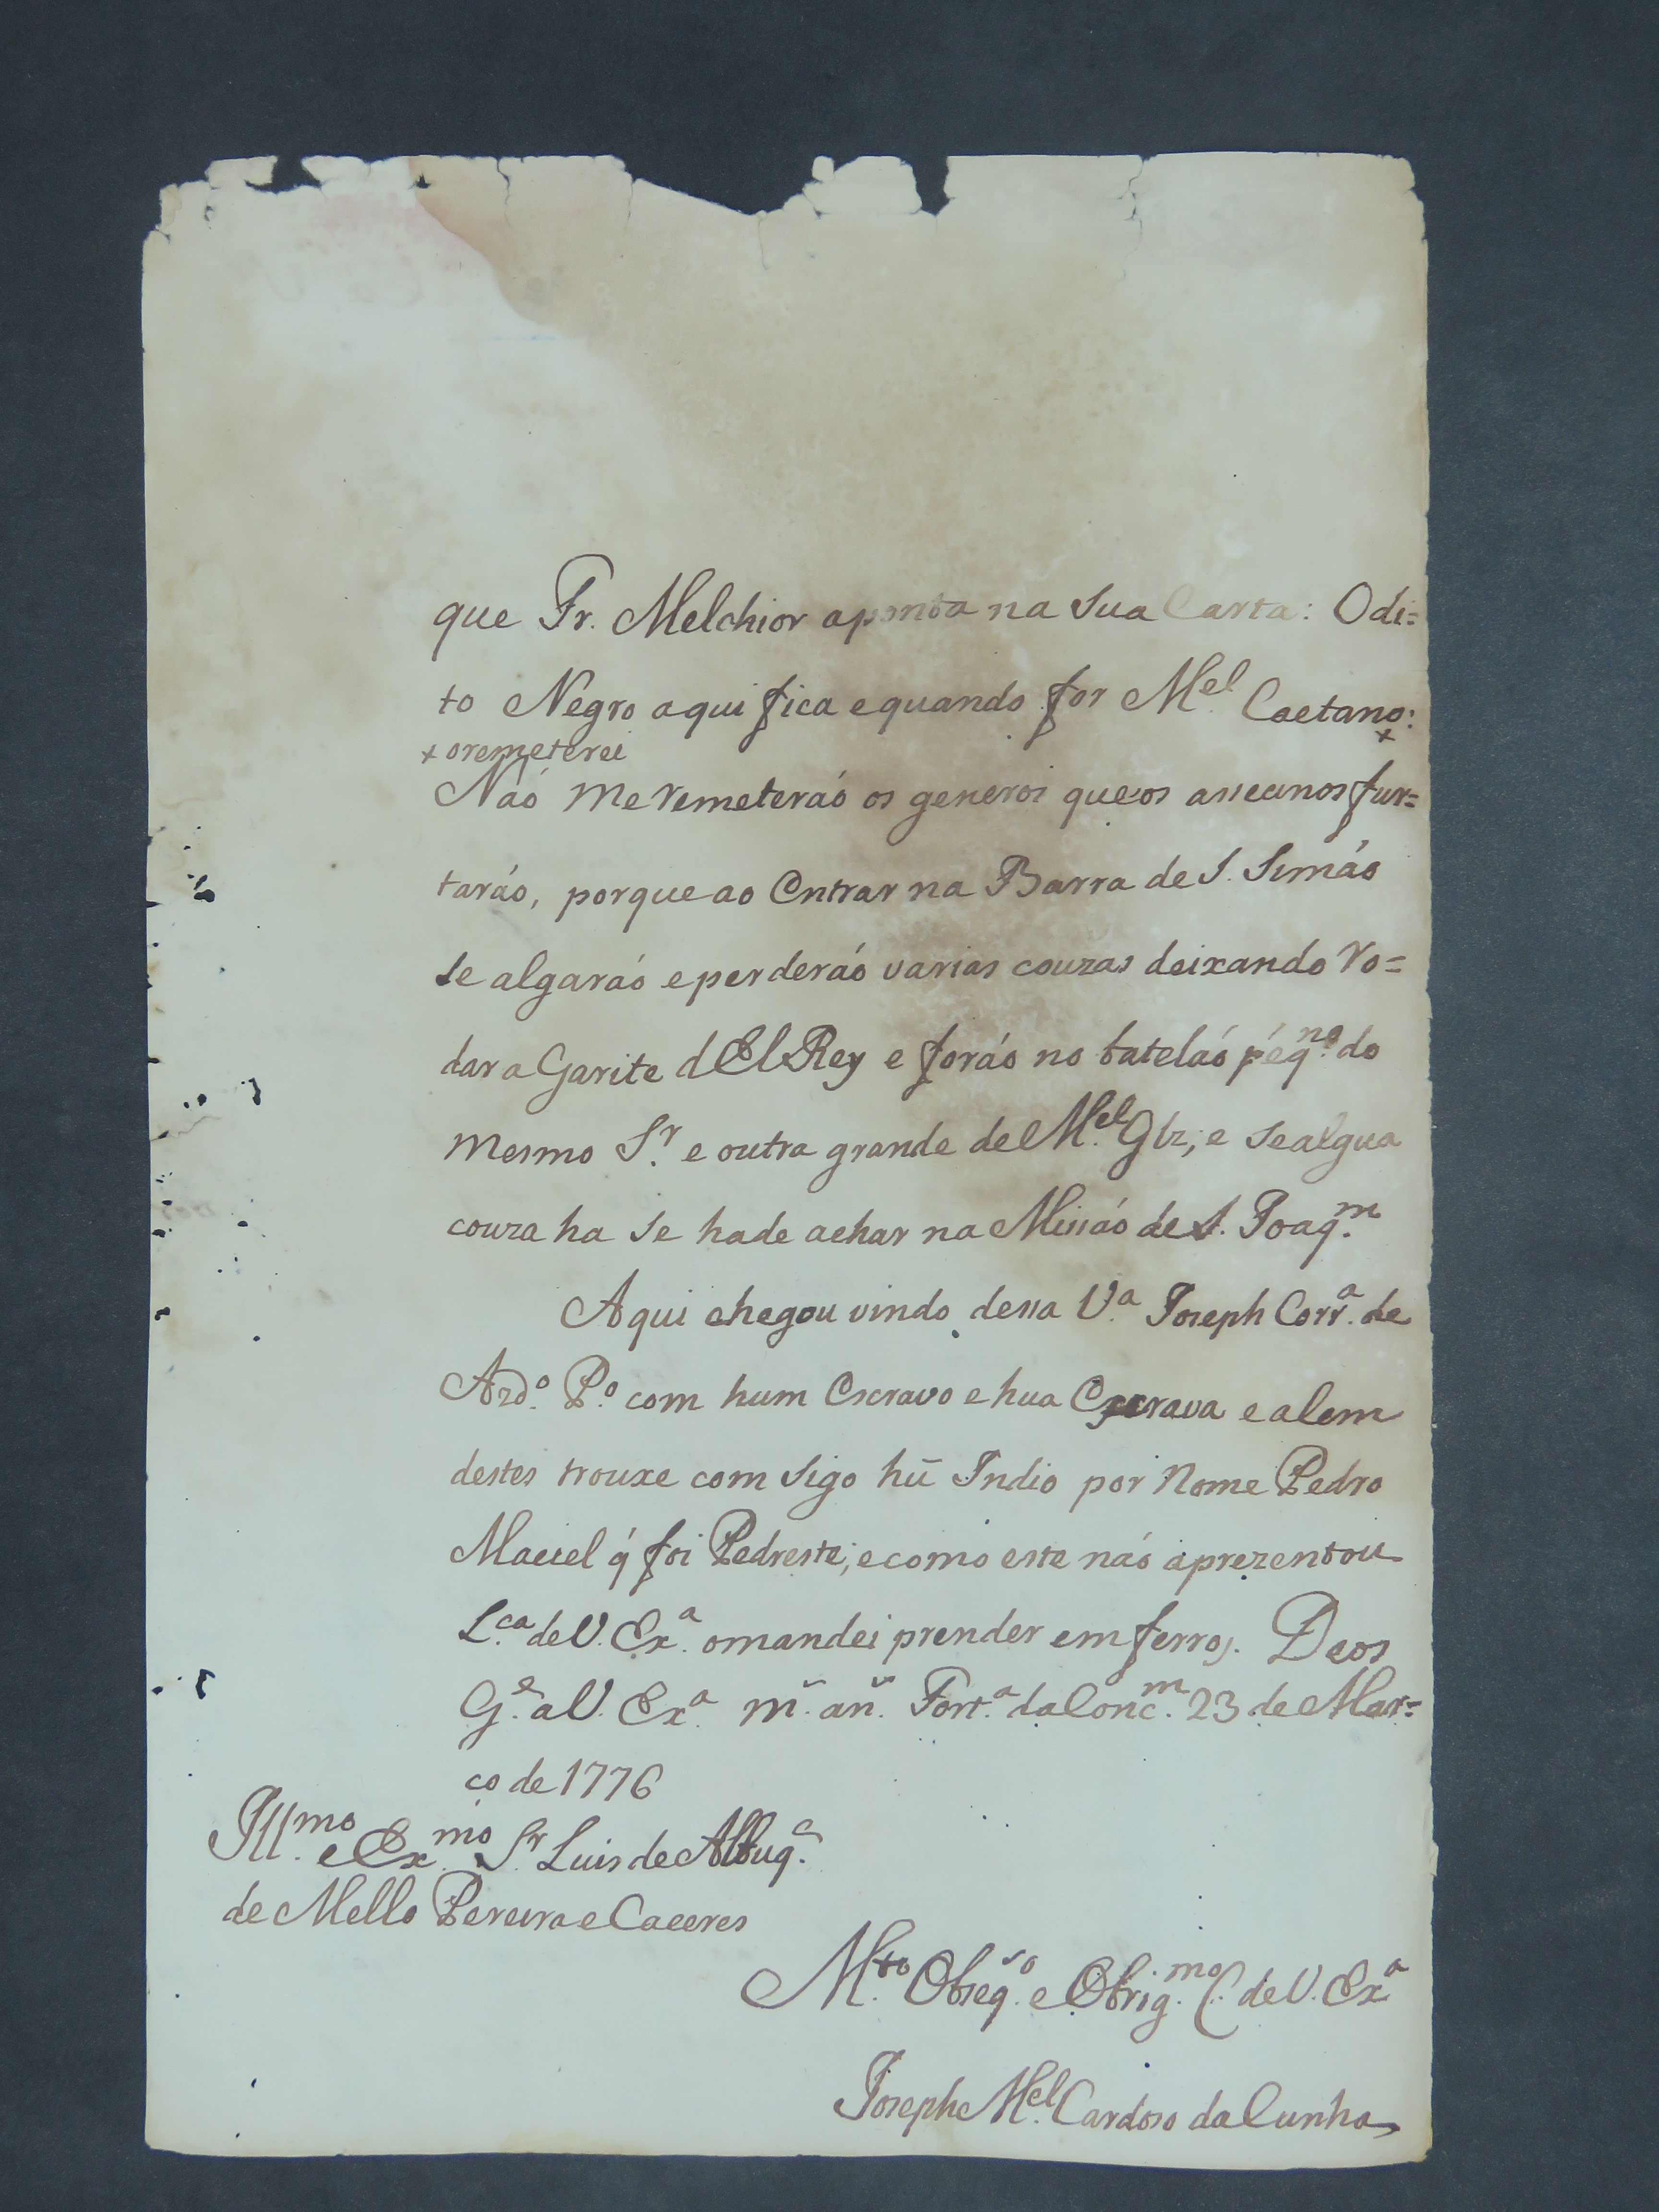 que Fr. Melchior aponta na sua Carta: Odi=
to Negro aqui fica equando for M.el Caetano:
+ oremeterei
Náo me remeteráo os generos queos assanos fur=
taráo, porqueao Entrar na Barra de S. Simáo
se algaráo eperderáo varias couzas deixando ro=
dar a Garite dElRey e foráo no bateláo peq.no do
mesmo S.r e outra grande de M.el Glz; e sealgua
couza ha se hade achar na Missáo de S. Joaq.m
Aqui chegou vindo dessa V.a Joseph Corr.a de
Azd.o P.o com hum Escravo e hua Escrava e alem
destes trouxe com sigo hũ Indio por Nome Pedro
Maciel q́ foi Pedreste; ecomo este náo aprezentou
L.ca de V. Ex.a omandei prender em ferros. Deos
G.e a V. Ex.a m.̃ an.̃ Fort.a da Conc.m 23 de Mar=
ço de 1776
Ill.mo e Ex.mo S.r Luis de Albuq.e
de Mello Pereira e Caceres
M.to Obseq.so e Obrig.mo C. de V. Ex.a
Joseph M.el Cardoso da Cunha